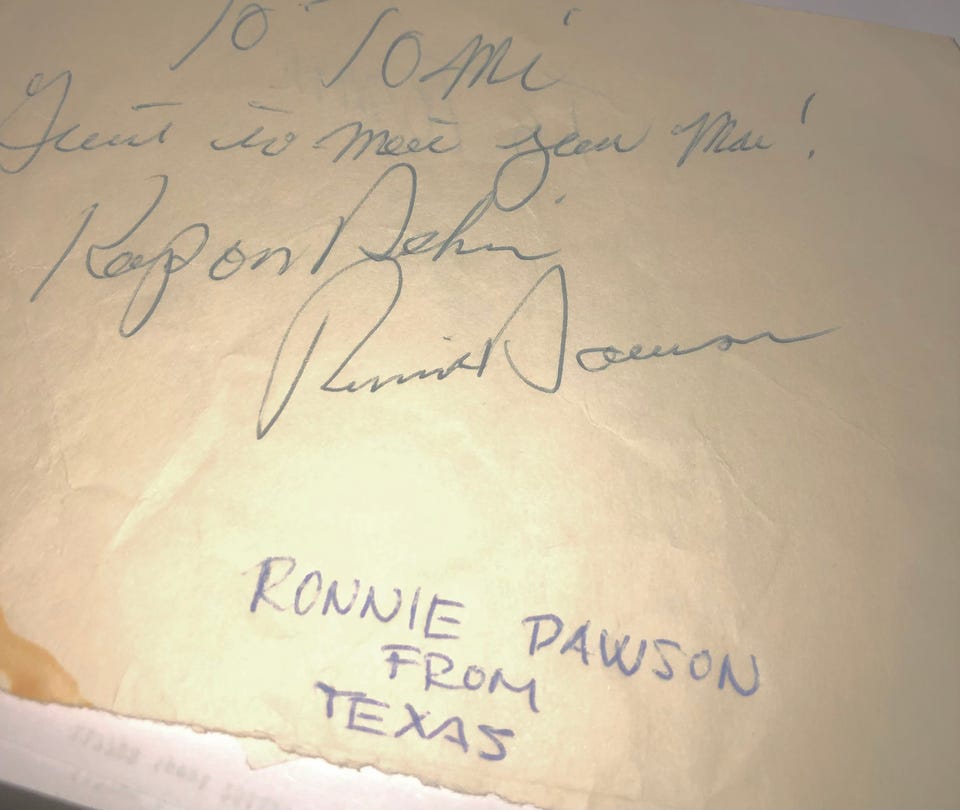 To Tomi
Great to meet you Man!
Keep on Rockin
Ronnie Dawson
RONNIE DAWSON
FROM
TEXAS